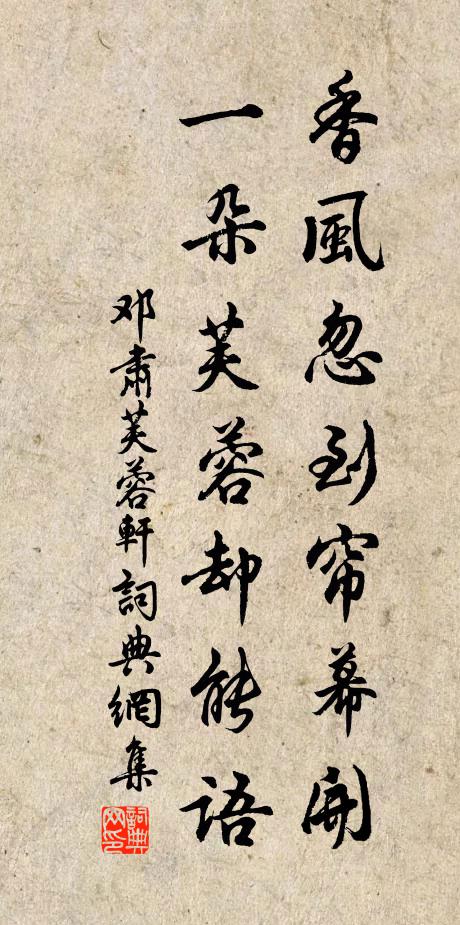 香風忽到帘幕開
一朵芙蓉却能語
邓肅芙蓉軒詞典網集
詞典
网印